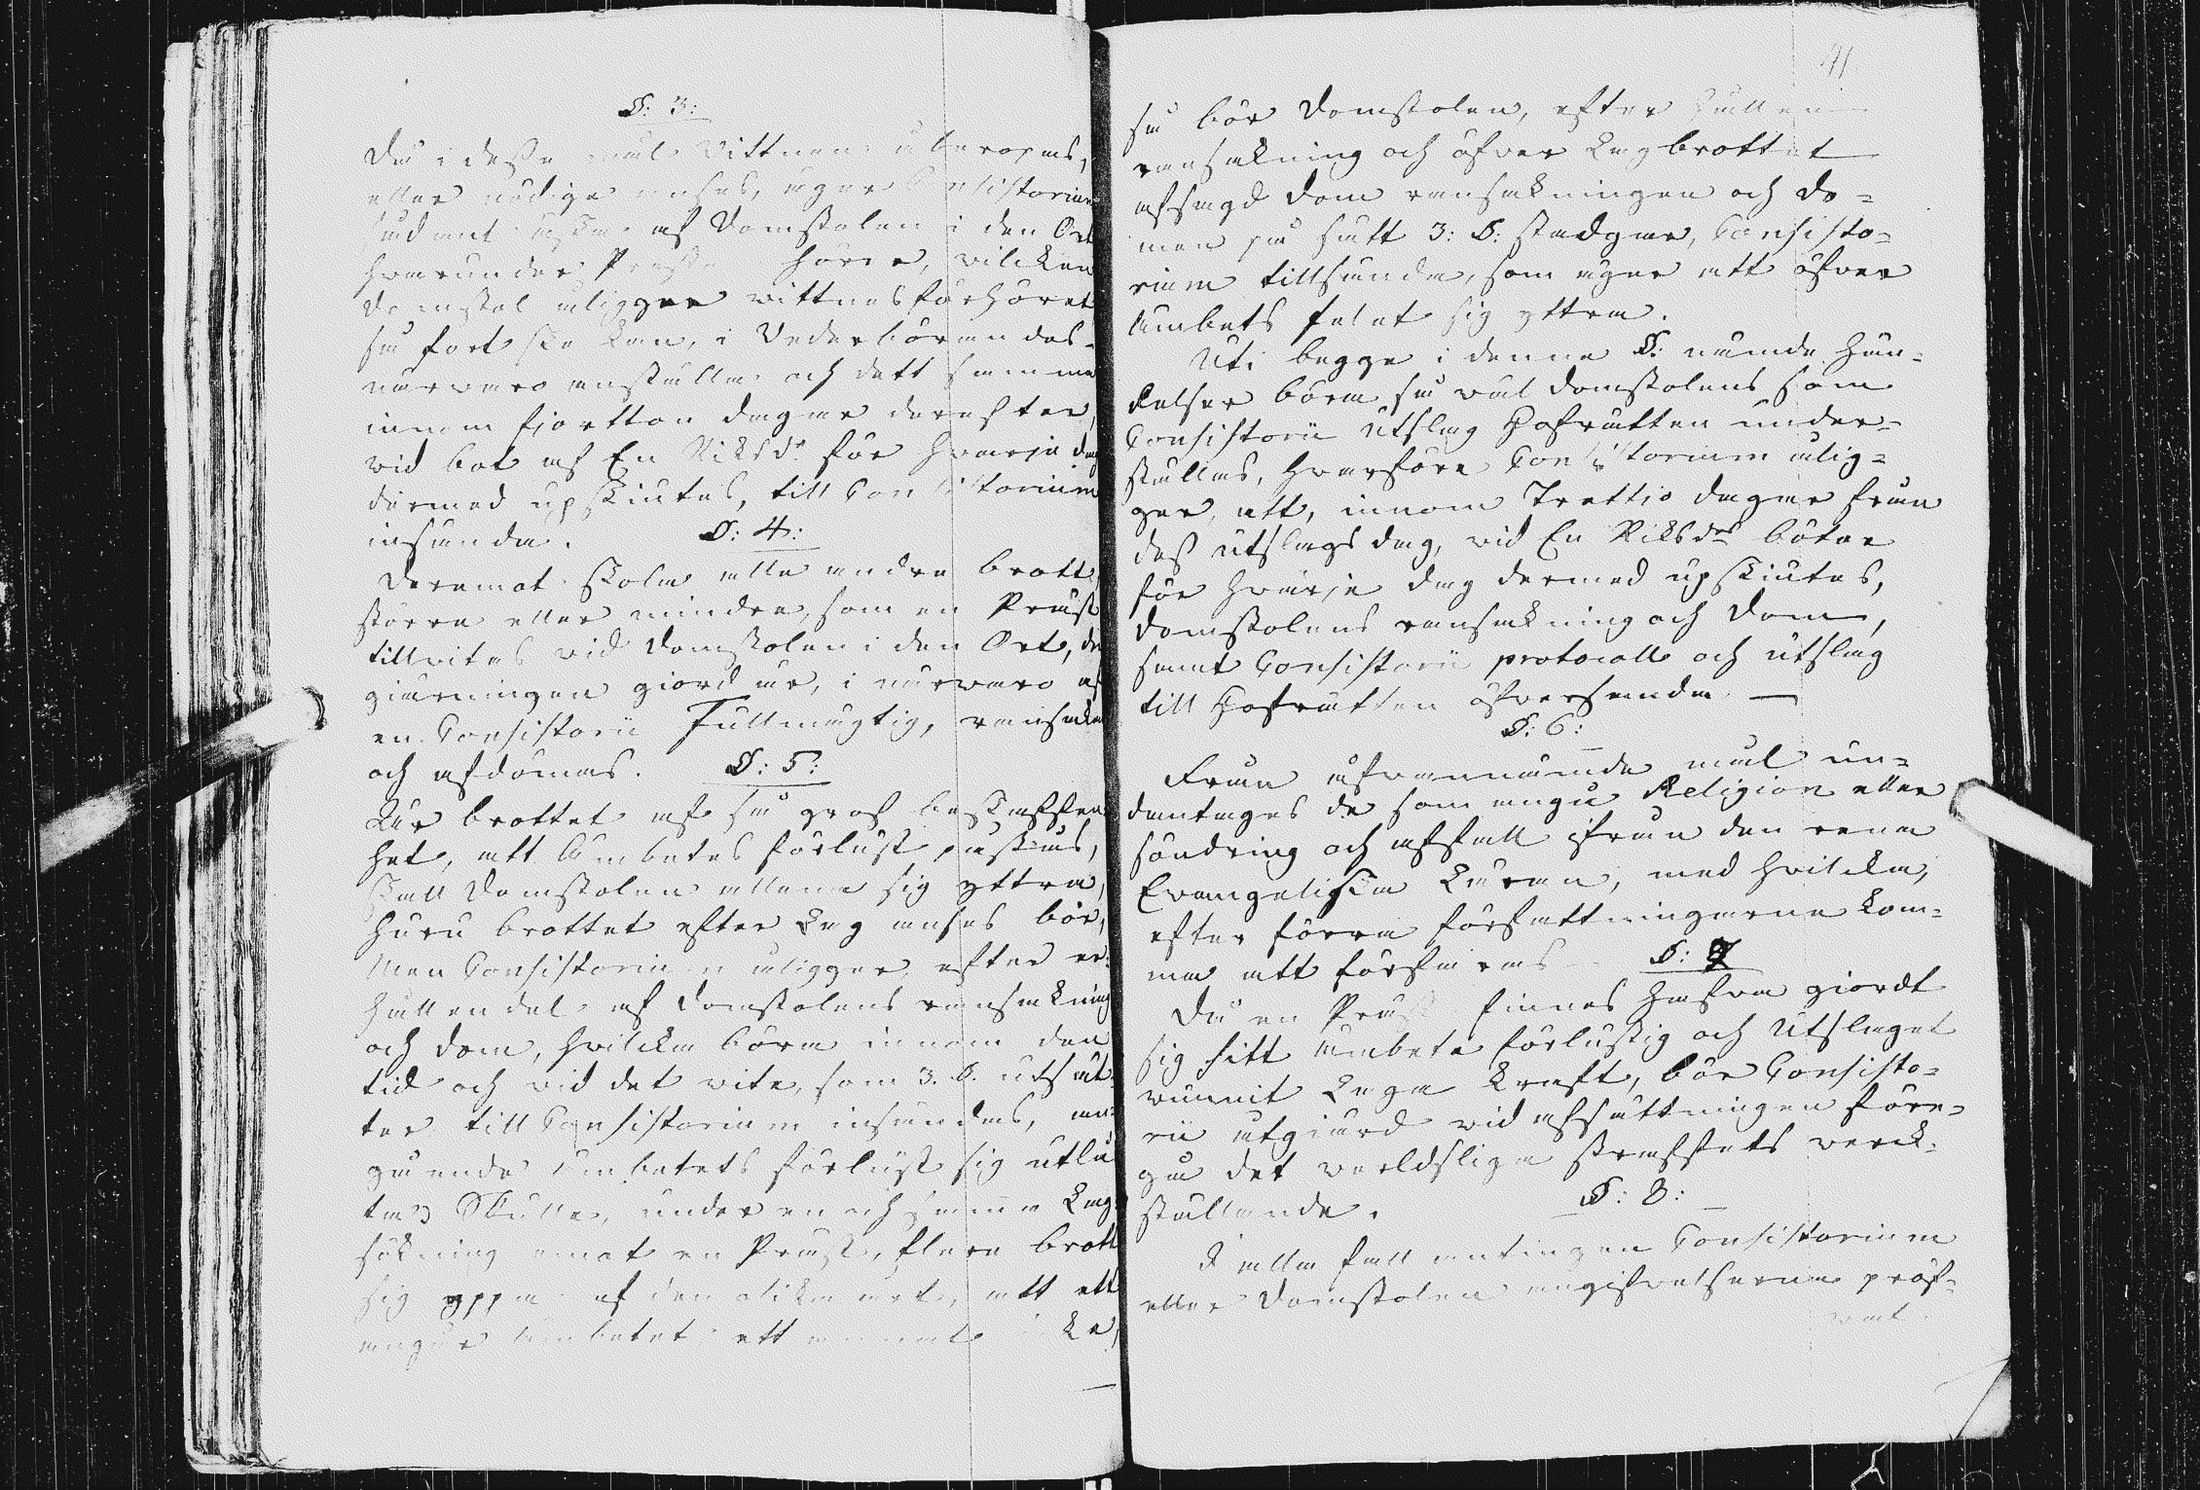 §: 3:
Då i desse mål Vittnen åberopas,
eller nödige anses, äger Consistorium
sådant äska af Domstolen i den Ort
hvarunder Presten hörer, vilcken
domstol åligger vittnesförhöret
så fort ske kan, i Vederbörandes
närvaro anställa och dett samma
innom fjortton dagar derefter,
vid bot af En Riksdr för hvarje dag
dermed upskiutes, till Consistorium
insända.
§: 4:
Deremot skola alla andra brott
större eller mindre, som en Präst
tillvites vid Domstolen i den Ort, der
gjärningen giord är, i närvaro af
en Consistorii Fullmägtig, ransakas
och afdömas.
§: 5:
Är brottet af så grof beskaffen
het, att Ämbetes förlust påstås,
skall Domstolen allena sig yttra,
huru brottet efter Lag anses bör,
Men Consistorium åligger, efter er-
hållen del af Domstolens ransakning
och dom, hvilcka böra innom den
tid och vid det vite, som 3. §. utsät-
ter till Consistorium insändas, an-
gående Ämbetets förlust sig utlå-
ta; Skulle, under en och samma Lag-
sökning emot en Präst, flere brott
sig yppa af den olika art, att ett
angår Ämbetet ett annat icke,
41
så bör Domstolen, efter hållen
ransakning och öfver Lagbrottet
afsagd dom ransakningen och do-
men på sätt 3: §: stadgar, Consisto-
rium tillsända, som äger att öfver
Ämbets felet sig yttra.
Uti begge i denne §: nämde hän-
delser böra så väl domstolens som
Consistorii Utslag Hofrätten under-
ställas, hvarföre Consistorium ålig-
ger, att, innom Trettio dagar från
dess utslags dag, vid En Riksdrs böter
för hvarje dag dermed upskiutes,
domstolens ransakning och dom,
samt Consistorii protocoll och utslag
till Hofrätten öfversända. —
§: 6:
Från ofvannämde mål un-
dantages de som angå Religion eller
söndring och affall ifrån den rena
Evangeliska Läran, med hvilcka,
efter förra författningarna kom-
ma att förfaras
§: 7
Då en Präst finnes hafva giordt
sig sitt ämbete förlustig och Utslaget
vunnit Laga kraft, bör Consisto-
rii utgiärd vid afsättningen före-
gå det verldsliga straffets verck-
ställande.
§: 8:
I alla fall antingen Consistorium
eller Domstolen angifvelserna pröf-
vat